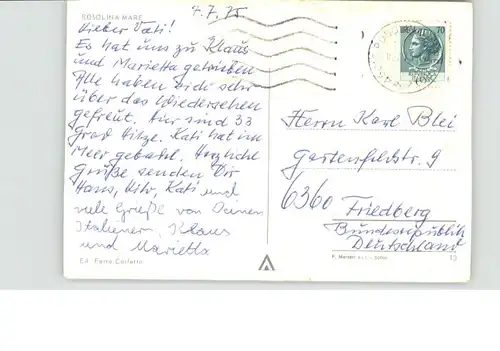 ROSOLINA MARE
7.7.75
Lieber Vati!
Es hat uns zu Klaus
und Marietta getrieben
Alle haben sich sehr
über das Wiedersehen
gefreut. Hier sind 33
Grad Hitze. Kati hat im
Meer gebadet. Herzliche
Grüße senden Dir
Hans, Kati und
viele Grüße von Deinen
Italienern, Klaus
und Marietta
Ed. Ferro Carletto
70
Herrn Karl Blei
Gartenfeldstr. 9
6360 Friedberg
Bundesrepublik
Deutschland